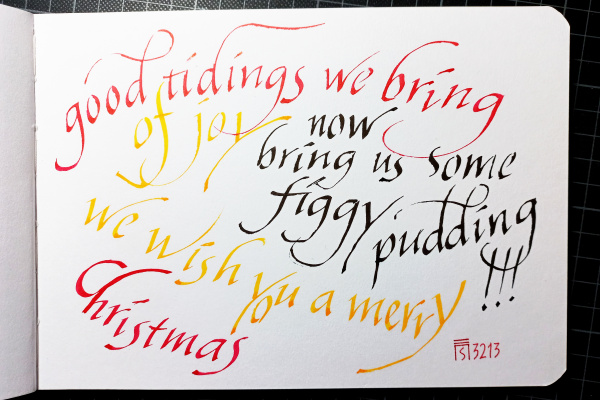 good tidings we bring
of joy
now
bring us some
figgy pudding
!!!
we wish you a merry
Christmas
3213